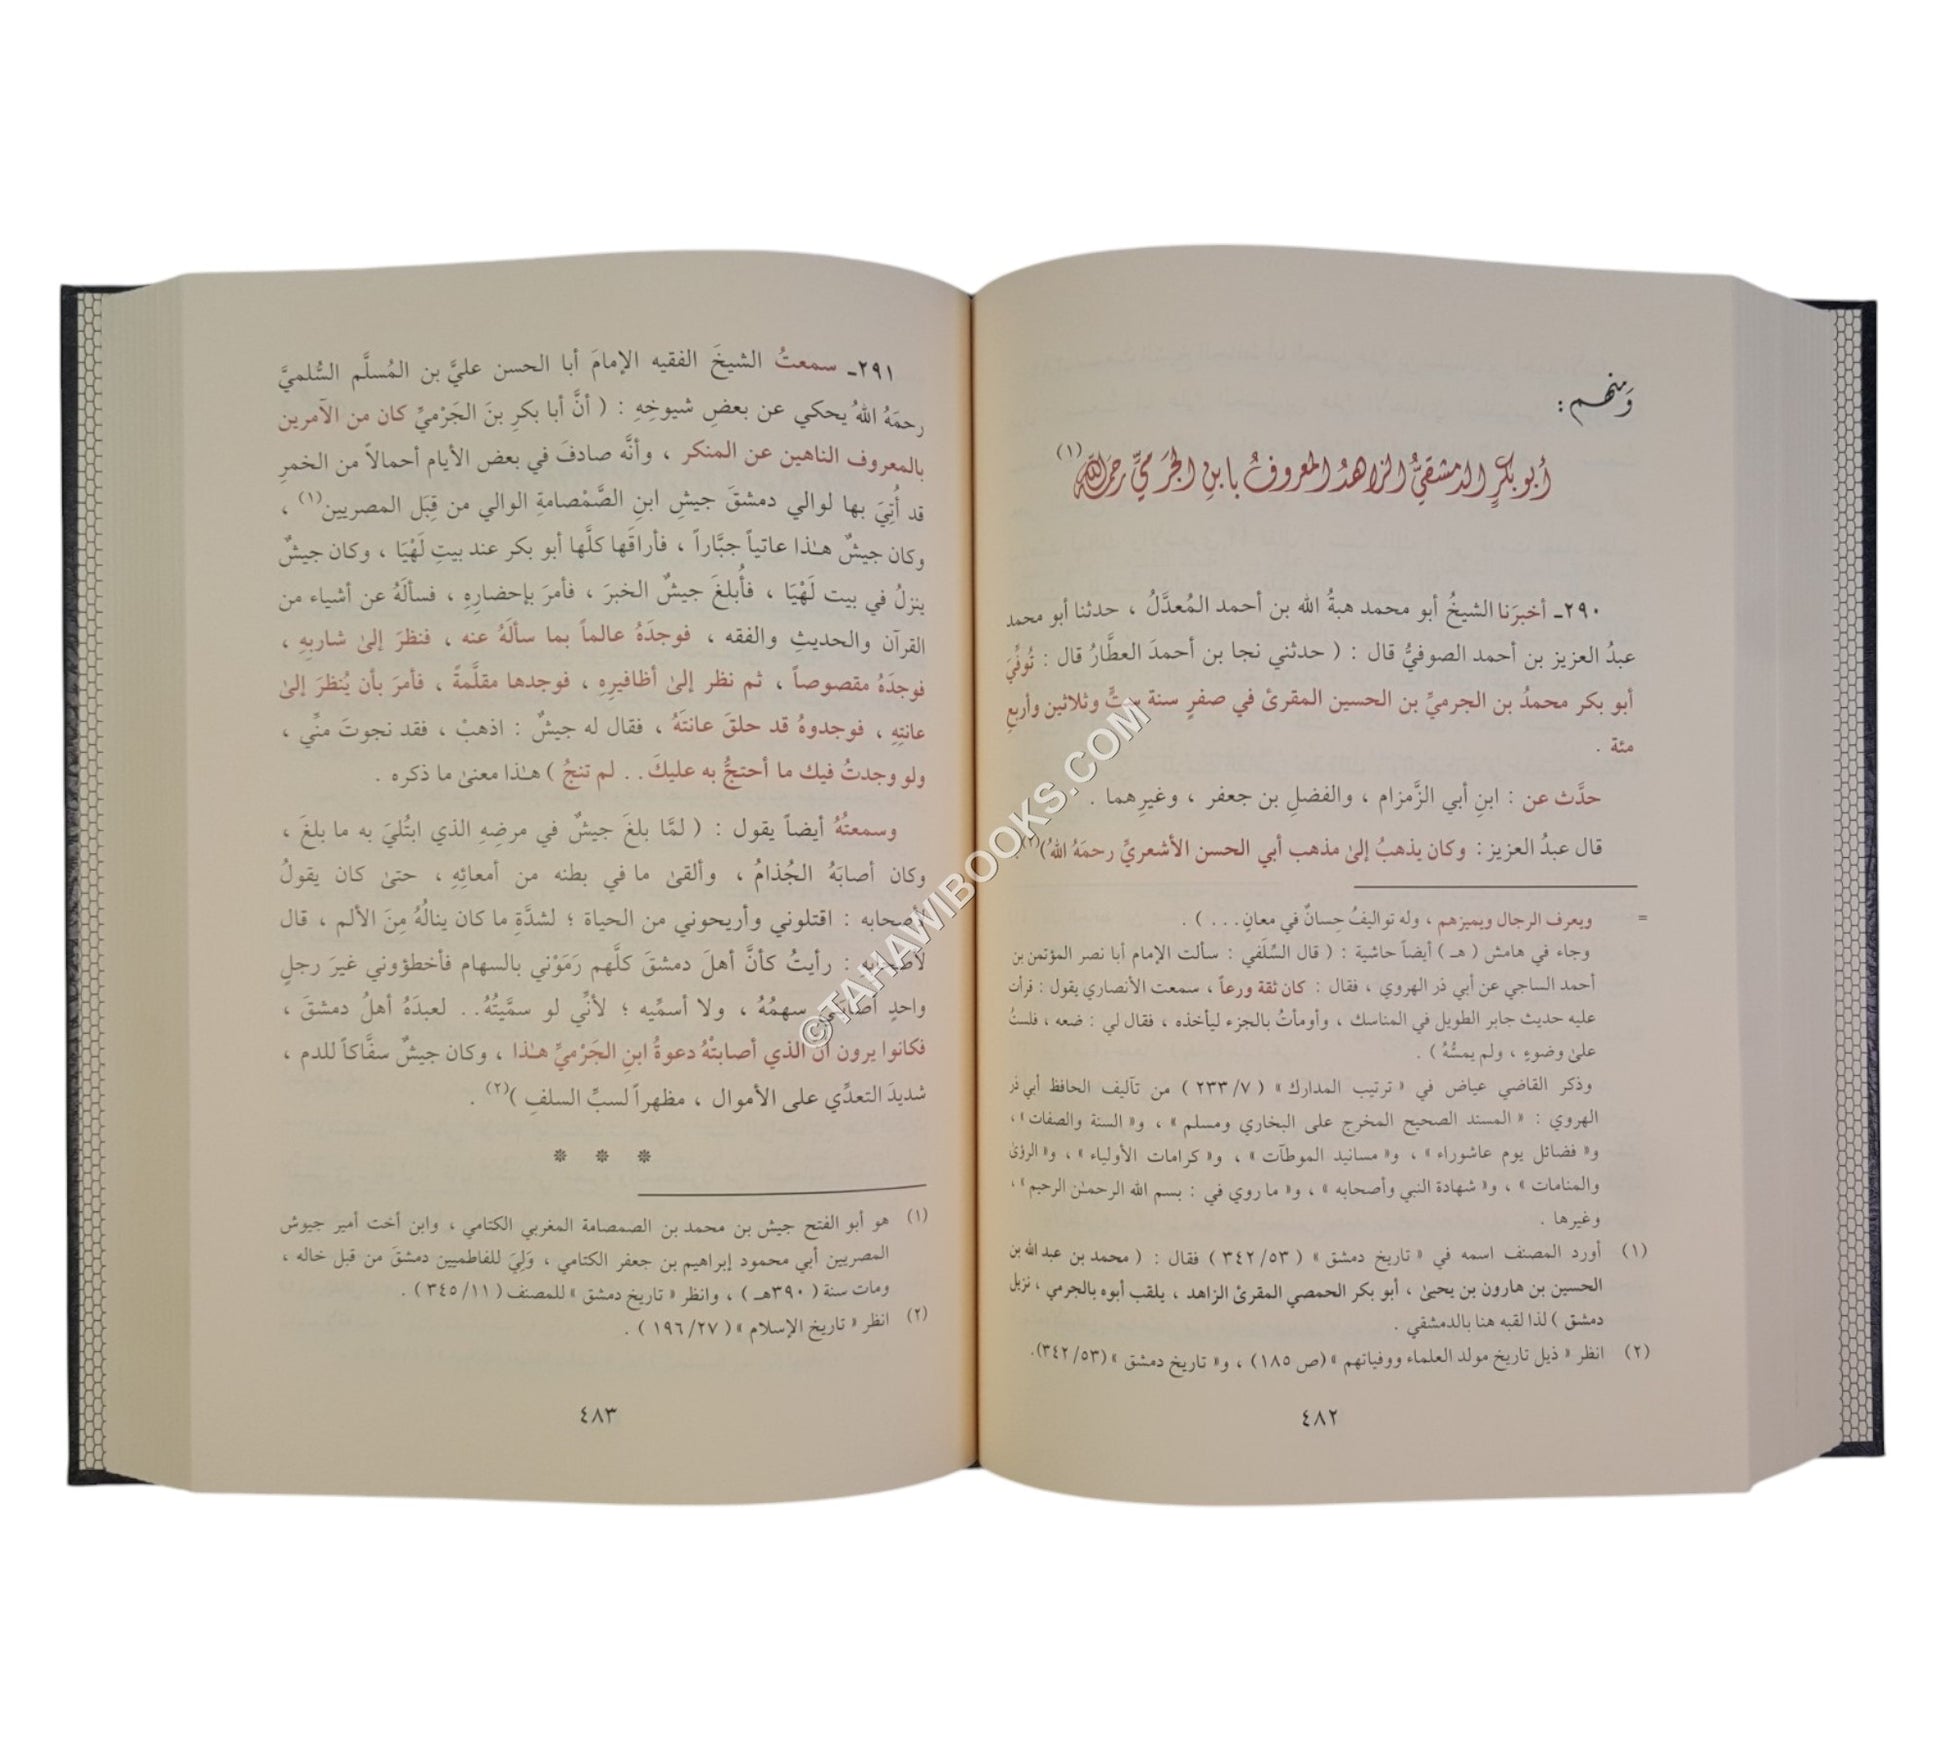 وَمنهم :
أبو بكرٍ الدمشقيُّ الزاهدُ المعروفُ بابنِ الجَرميِّ رحمه الله(١)
٢٩٠ـ أخبرَنا الشيخُ أبو محمد هبةُ الله بن أحمد المُعدَّلُ ، حدثنا أبو محمد
عبدُ العزيز بن أحمد الصوفيُّ قال : ( حدثني نجا بن أحمدَ العطَّارُ قال : تُوفِّيَ
أبو بكر محمدُ بن الجرميِّ بن الحسين المقرئ في صفرٍ سنة ستٍّ وثلاثين وأربعِ
مئة .
حدَّث عن : ابنِ أبي الزَّمزام ، والفضلِ بن جعفر ، وغيرِهما .
قال عبدُ العزيز : وكان يذهبُ إلىٰ مذهب أبي الحسن الأشعريِّ رحمَهُ اللهُ)(٢) .
= ويعرف الرجال ويميزهم ، وله تواليفُ حِسانٌ في معانٍ... ) .
وجاء في هامش ( هـ ) أيضاً حاشية : ( قال السِّلَفي : سألت الإمام أبا نصر المؤتمن بن
أحمد الساجي عن أبي ذر الهروي ، فقال : كان ثقة ورعاً ، سمعت الأنصاري يقول : قرأت
عليه حديث جابر الطويل في المناسك ، وأومأتُ بالجزء ليأخذه ، فقال لي : ضعه ، فلستُ
علىٰ وضوءٍ ، ولم يمسُّهُ ) .
وذكر القاضي عياض في « ترتيب المدارك » ( ٢٣٣/٧ ) من تآليف الحافظ أبي ذر
الهروي : « المسند الصحيح المخرج على البخاري ومسلم » ، و« السنة والصفات » ،
و« فضائل يوم عاشوراء » ، و« مسانيد الموطآت » ، و« كرامات الأولياء » ، و« الرؤىٰ
والمنامات » ، و« شهادة النبي وأصحابه » ، و« ما روي في : بسم الله الرحمـٰن الرحيم » ،
وغيرها .
(١) أورد المصنف اسمه في « تاريخ دمشق » ( ٣٤٢/٥٣ ) فقال : ( محمد بن عبد الله بن
الحسين بن هارون بن يحيىٰ ، أبو بكر الحمصي المقرئ الزاهد ، يلقب أبوه بالجرمي ، نزيل
دمشق ) لذا لقبه هنا بالدمشقي .
(٢) انظر « ذيل تاريخ مولد العلماء ووفياتهم » (ص ١٨٥) ، و« تاريخ دمشق » (٣٤٢/٥٣).
٤٨٢
٢٩١ـ سمعتُ الشيخَ الفقيه الإمامَ أبا الحسن عليَّ بن المُسلَّم السُّلميَّ
رحمَهُ اللهُ يحكي عن بعضِ شيوخِهِ : ( أنَّ أبا بكرِ بنَ الجَرْميِّ كان من الآمرين
بالمعروف الناهين عن المنكر ، وأنَّه صادفَ في بعض الأيام أحمالاً من الخمرِ
قد أُتِيَ بها لوالي دمشقَ جيشِ ابنِ الصَّمْصامةِ الوالي من قِبَل المصريين(١) ،
وكان جيشٌ هـٰذا عاتياً جبَّاراً ، فأراقَها كلَّها أبو بكر عند بيتِ لَهْيَا ، وكان جيشٌ
ينزلُ في بيت لَهْيَا ، فأُبلغَ جيشٌ الخبرَ ، فأمرَ بإحضارِهِ ، فسألَهُ عن أشياء من
القرآن والحديثِ والفقه ، فوجدَهُ عالماً بما سألَهُ عنه ، فنظرَ إلىٰ شاربِهِ ،
فوجدَهُ مقصوصاً ، ثم نظر إلىٰ أظافيرِهِ ، فوجدها مقلَّمةً ، فأمرَ بأن يُنظرَ إلىٰ
عانتِهِ ، فوجدوهُ قد حلقَ عانتَهُ ، فقال له جيشٌ : اذهبْ ، فقد نجوتَ منِّي ،
ولو وجدتُ فيك ما أحتجُّ به عليكَ.. لم تنجُ ) هـٰذا معنىٰ ما ذكره .
وسمعتُهُ أيضاً يقول : ( لمَّا بلغَ جيشٌ في مرضِهِ الذي ابتُليَ به ما بلغَ ،
وكان أصابَهُ الجُذامُ ، وألقىٰ ما في بطنه من أمعائِهِ ، حتىٰ كان يقولُ
لأصحابه : اقتلوني وأريحوني من الحياة ؛ لشدَّةِ ما كان ينالُهُ مِنَ الألم ، قال
لأصحابه : رأيتُ كأنَّ أهلَ دمشقَ كلَّهم رَمَوْني بالسهام فأخطؤوني غيرَ رجلٍ
واحدٍ أصابَني سهمُهُ ، ولا أسمِّيه ؛ لأنِّي لو سمَّيتُهُ.. لعبدَهُ أهلُ دمشقَ ،
فكانوا يرون أن الذي أصابتْهُ دعوةُ ابنِ الجَرْميِّ هـٰذا ، وكان جيشٌ سفَّاكاً للدم ،
شديدَ التعدِّي على الأموال ، مظهراً لسبِّ السلفِ )(٢) .
* * *
(١) هو أبو الفتح جيش بن محمد بن الصمصامة المغربي الكتامي ، وابن أخت أمير جيوش
المصريين أبي محمود إبراهيم بن جعفر الكتامي ، وَلِيَ للفاطميين دمشقَ من قبل خاله ،
ومات سنة ( ٣٩٠هـ ) ، وانظر « تاريخ دمشق » للمصنف ( ٣٤٥/١١ ) .
(٢) انظر « تاريخ الإسلام » ( ١٩٦/٢٧ ) .
٤٨٣
©TAHAWIBOOKS.COM